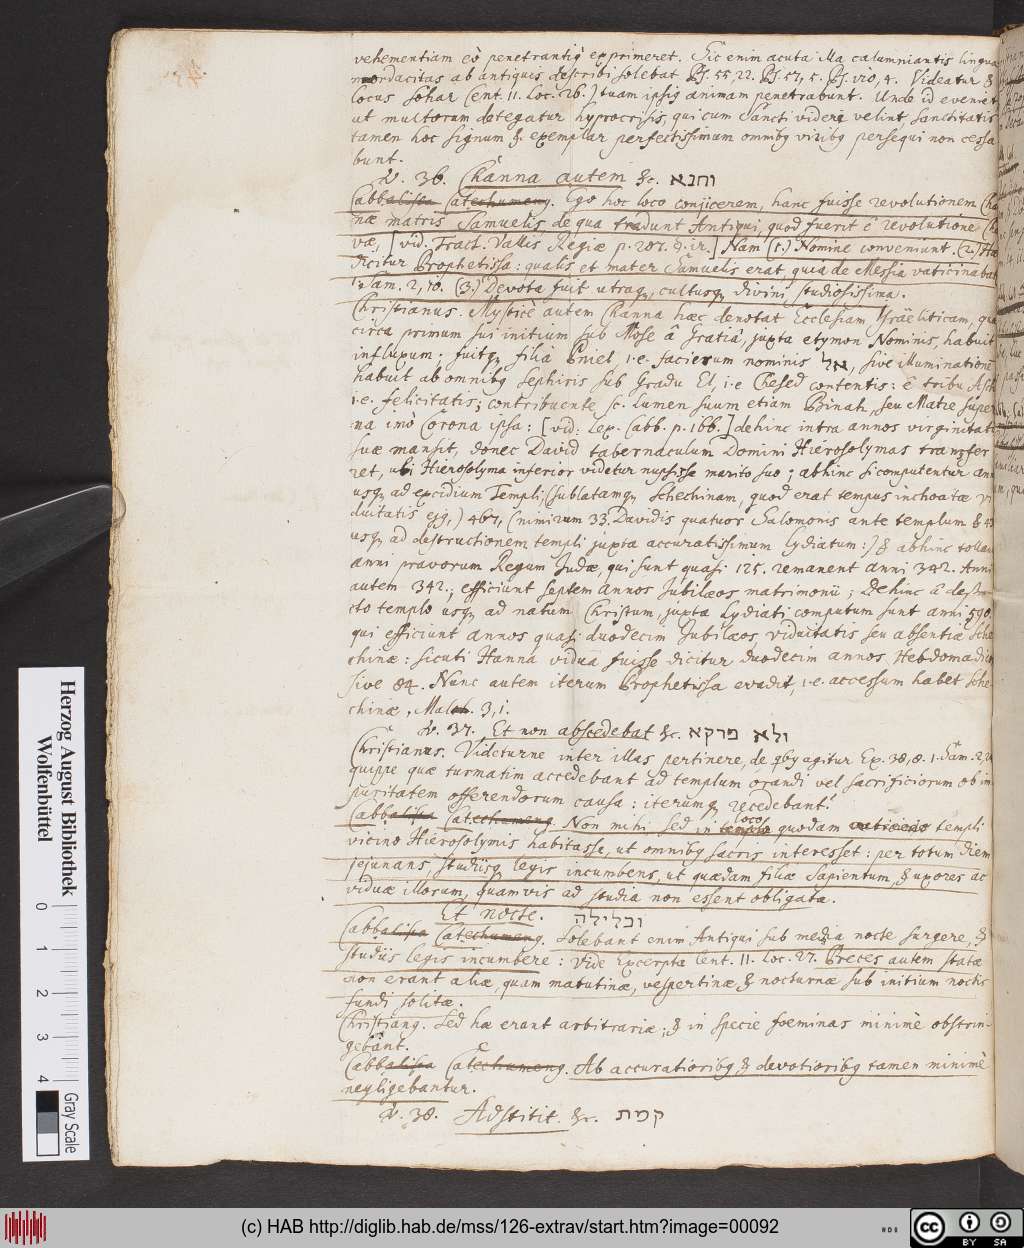 vehementiam eò penetrantiq exprimeret. Sic enim acuta illa calumniantis lingua
mordacitas ab antiquis describi solebat Ps. 55, 22. Ps. 57, 5. Ps. 120, 4. Videatur &
locus Sohar Cent. 11. Loc. 26.] tuam ipsiq animam penetrabunt. Unde id eveniet
ut multorum detegatur hypocrisis, qui cum Sancti videri velint, Sanctitatis
tamen hoc signum & exemplar perfectissimum omnibq viribq persequi non cessa
bunt.
V. 36. Channa autem &c. וחנא
Cabbalista Catechumenq. Ego hoc loco conjicerem, hanc fuisse revolutionem Cha
næ matris Samuelis de qua tradunt Antiqui, quod fuerit è revolutione
væ, [vid. Tract. Vallis Regiæ p. 207. & ] Nam (1.) Nomine conveniunt. (2.) Hæc
dicitur Prophetissa: qualis et mater Samuelis erat, quia de Messia vaticinabat
1. Sam. 2, 10. (3.) Devota fuit utraq, cultusq divini studiosissima.
Christianus. Mysticè autem Channa hæc denotat Ecclesiam Israëliticam, quæ
circa primum sui initium sub Mose à Gratiâ, juxta etymon Nominis, habuit
influxum: fuitq filia Pniel i.e. facierum nominis אל, sive illuminatione
habuit ab omnibq Sephiris sub Gradu El, i.e Chesed contentis: è tribu Asch
i.e. felicitatis; contribuente sc. lumen suum etiam Binah, seu Matre super
na imò Corona ipsa: [vid. Lex. Cabb. p. 166.] dehinc intra annos virginitat
suæ mansit, donec David tabernaculum Domini Hierosolymas transfer
ret, ubi Hierosolyma inferior videtur nupsisse marito suo; abhinc si computentur ann
usq ad excidium Templi, (sublatamq Schechinam, quod erat tempus inchoatæ vi
duitatis ejq,) 467, (nimirum 33. Davidis quatuor Salomonis ante templum &
usq ad destructionem templi juxta accuratissimum Lydiatum:) & abhinc tollan
anni pravorum Regum Judæ, qui sunt quasi 125. remanent anni 342. Anni
autem 342., efficiunt septem annos Jubilæos matrimonii; Dehinc à destru
cto templo usq ad natum Christum, juxta Lydiati computum sunt anni 590,
qui efficiunt annos quasi duodecim Jubilæos, viduitatis seu absentiæ Sche
chinæ: sicuti Hanna vidua fuisse dicitur duodecim annos, Hebdomadum
sive 84. Nunc autem iterum Prophetissa evadit, i.e. accessum habet Sche
chinæ, Malach. 3, 1.
V. 37. Et non abscedebat &c. ולא פרקא
Christianus. Videturne inter illas pertinere, de qbq agitur Ex. 38, 8. 1. Sam. 2, 22
quippe quæ turmatim accedebant ad templum orandi vel sacrificiorum ob im
puritatem offerendorum causa: iterumq recedebant?
Cabbalista Catechumenq. Non mihi sed in templo loco quodam templi
vicino Hierosolymis habitasse, ut omnibq sacris interesset: per totum diem
jejunans, studiisq legis incumbens, ut quædam filiæ Sapientum, & uxores ac
viduæ illorum, quamvis ad studia non essent obligata.
Et nocte. ובלילה
Cabbalista Catechumenq. Solebant enim Antiqui sub media nocte surgere, &
studiis legis incumbere: Vide Excerpta Cent. 11. Loc. 27. Preces autem statæ
non erant aliæ, quam matutinæ, vespertinæ & nocturnæ sub initium noctis
fundi solitæ.
Christianq. Sed hæ erant arbitrariæ; & in specie foeminas minimè obstrin-
gebant.
Cabbalista Catechumenq. Ab accuratioribq & devotioribq tamen minimè
negligebantur.
V. 38. Adstitit. &c. קמת
Herzog August Bibliothek
Wolfenbüttel
0 1 2 3 4
Gray Scale
(c) HAB http://diglib.hab.de/mss/126-extrav/start.htm?image=00092
cc BY SA